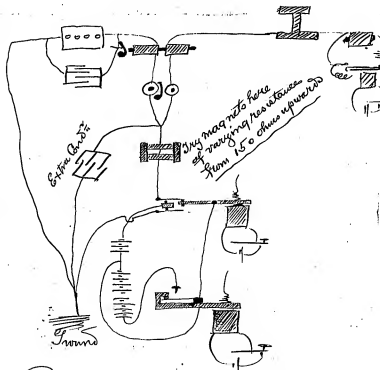 Extra Condr
Try magnets here
of varying resistances
from 150 ohms upwards
Ground